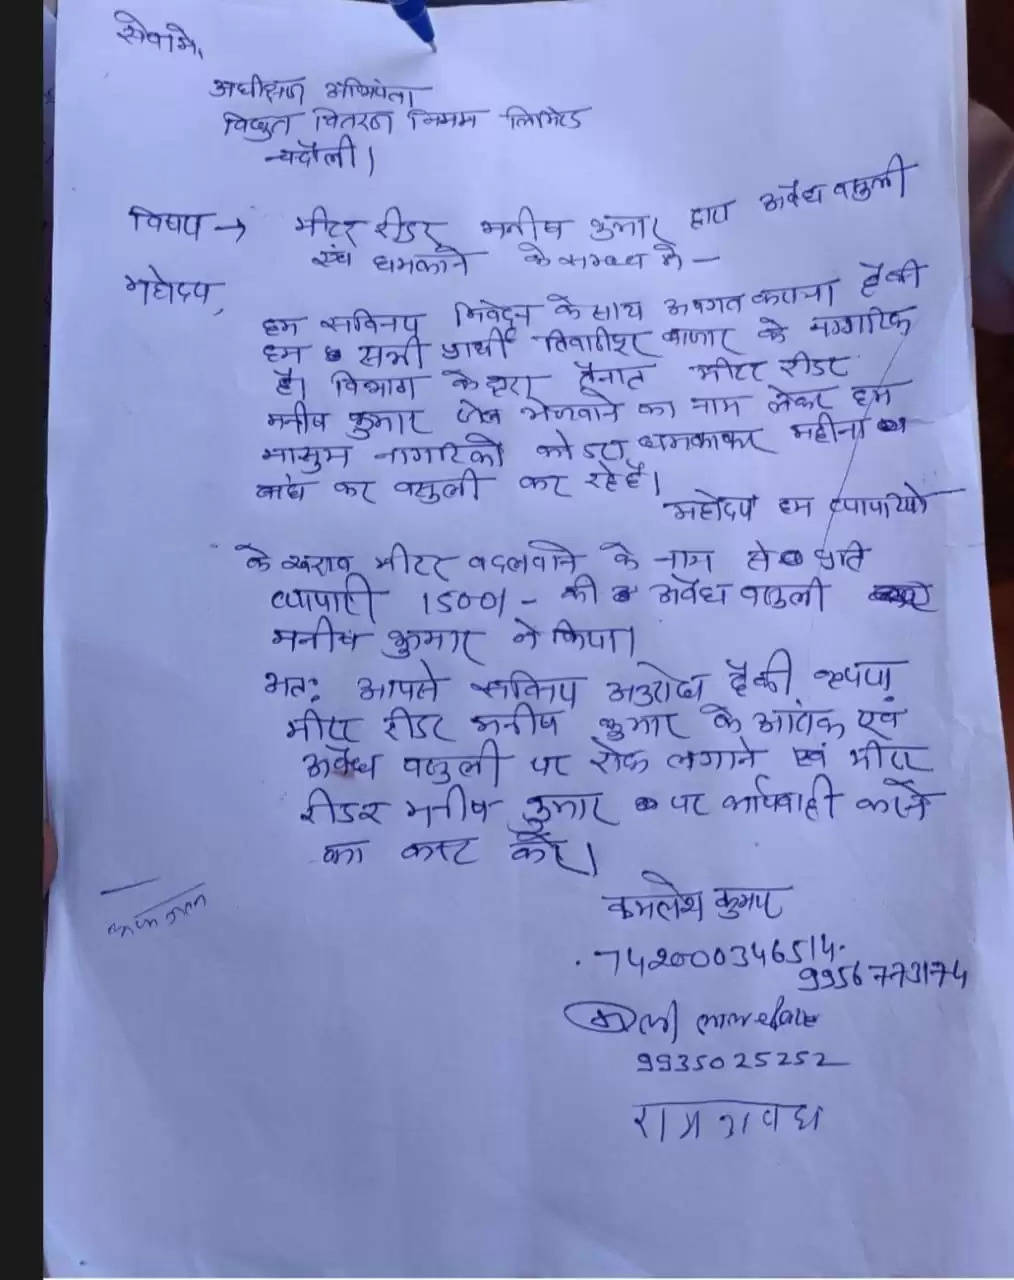 सेवामे,
अधीक्षण अभियंता
विद्युत वितरण निगम लिमिटेड
चंदौली।
विषय → मीटर रीडर मनीष कुमार द्वारा अवैध वसुली
एवं धमकाने के सम्बन्ध मे –
महोदय,
हम सविनय निवेदन के साथ अवगत कराना हैकी
हम सभी प्रार्थी बाजार के नागरिक
है। विभाग के द्वारा तैनात मीटर रीडर
मनीष कुमार जेल भेजवाने का नाम लेकर हम
मासुम नागरिको को डरा धमकाकर महीना
बांध कर वसुली कर रहे है।
महोदय हम व्यापारियो
के खराब मीटर बदलवाने के नाम से प्रति
व्यापारी 1500/- की अवैध वसुली
मनीष कुमार ने किया।
अतः आपसे सविनय अनुरोध हैकी कृपया
मीटर रीडर मनीष कुमार के आतंक एवं
अवैध वसुली पर रोक लगाने एवं मीटर
रीडर मनीष कुमार पर कार्यवाही करने
का कस्ट करे।
कमलेश कुमार
742000346514
9956773174
9935025252
रामअवध